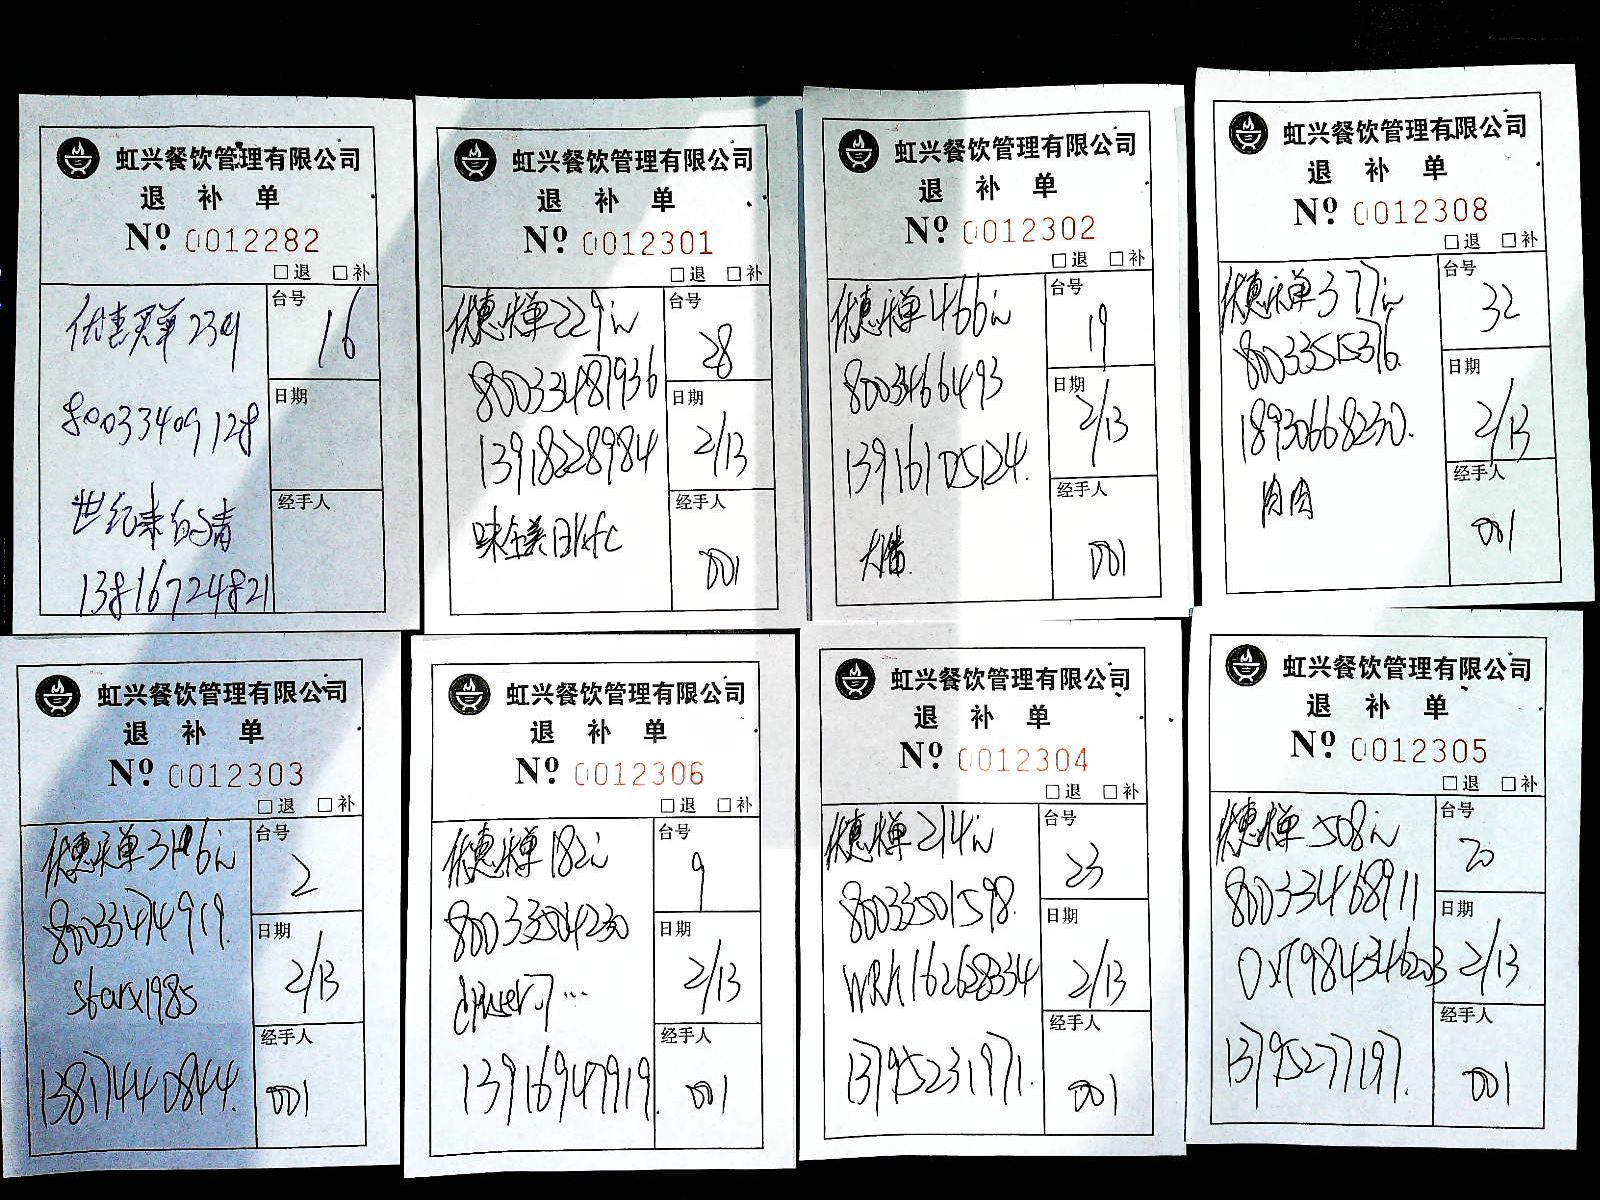 虹兴餐饮管理有限公司
退 补 单
Nº 0012282
□退 □补
优惠买单 234
台号
16
80033409128
日期
世纪末的
经手人
13816724821
虹兴餐饮管理有限公司
退 补 单
Nº 0012301
□退 □补
优惠买单 229元
台号
28
80033487936
日期
2/13
13918228984
味全美日kfc
经手人
001
虹兴餐饮管理有限公司
退 补 单
Nº 0012302
□退 □补
优惠买单 466元
台号
19
8003466493
日期
2/13
13916105124
经手人
001
虹兴餐饮管理有限公司
退 补 单
Nº 0012308
□退 □补
优惠买单 377元
台号
32
80033515376
日期
2/13
18930668230
肉肉
经手人
001
虹兴餐饮管理有限公司
退 补 单
Nº 0012303
□退 □补
优惠买单
台号
2
80033474919
日期
2/13
starx1985
经手人
001
13817440844
虹兴餐饮管理有限公司
退 补 单
Nº 0012306
□退 □补
优惠买单 182元
台号
9
80033504230
日期
2/13
经手人
001
13916947919
虹兴餐饮管理有限公司
退 补 单
Nº 0012304
□退 □补
优惠买单 214元
台号
23
80033501598
日期
2/13
WRh162628334
经手人
001
13795231971
虹兴餐饮管理有限公司
退 补 单
Nº 0012305
□退 □补
优惠买单 508元
台号
20
80033468911
日期
2/13
经手人
001
13795277197